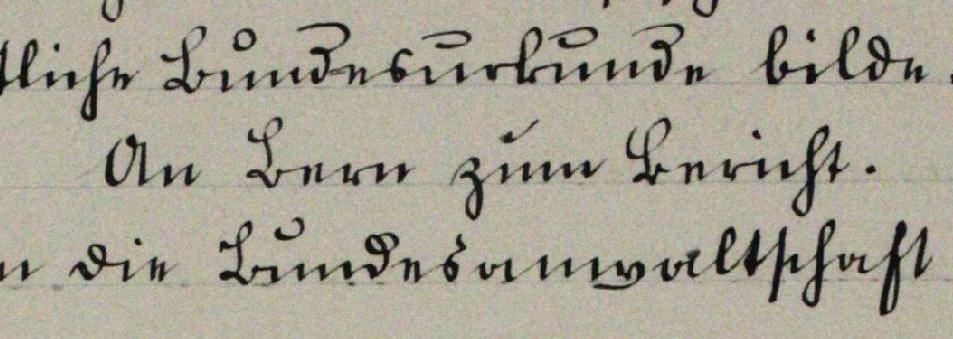 tliche Bundesurkunde bilde.
An Bern zum Bericht.
n die Bundesanwaltschaft